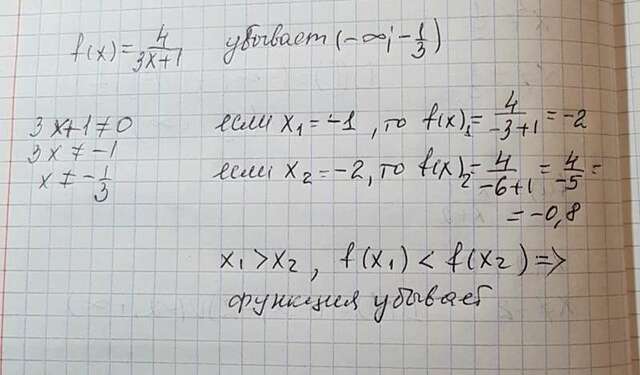 f(x) = 4/(3x+1) убывает (-∞; -1/3)
3x+1≠0
3x ≠ -1
x ≠ -1/3
если x₁ = -1, то f(x)₁ = 4/(-3+1) = -2
если x₂ = -2, то f(x)₂ = 4/(-6+1) = 4/-5 =
= -0,8
x₁ > x₂, f(x₁) < f(x₂) =>
функция убывает